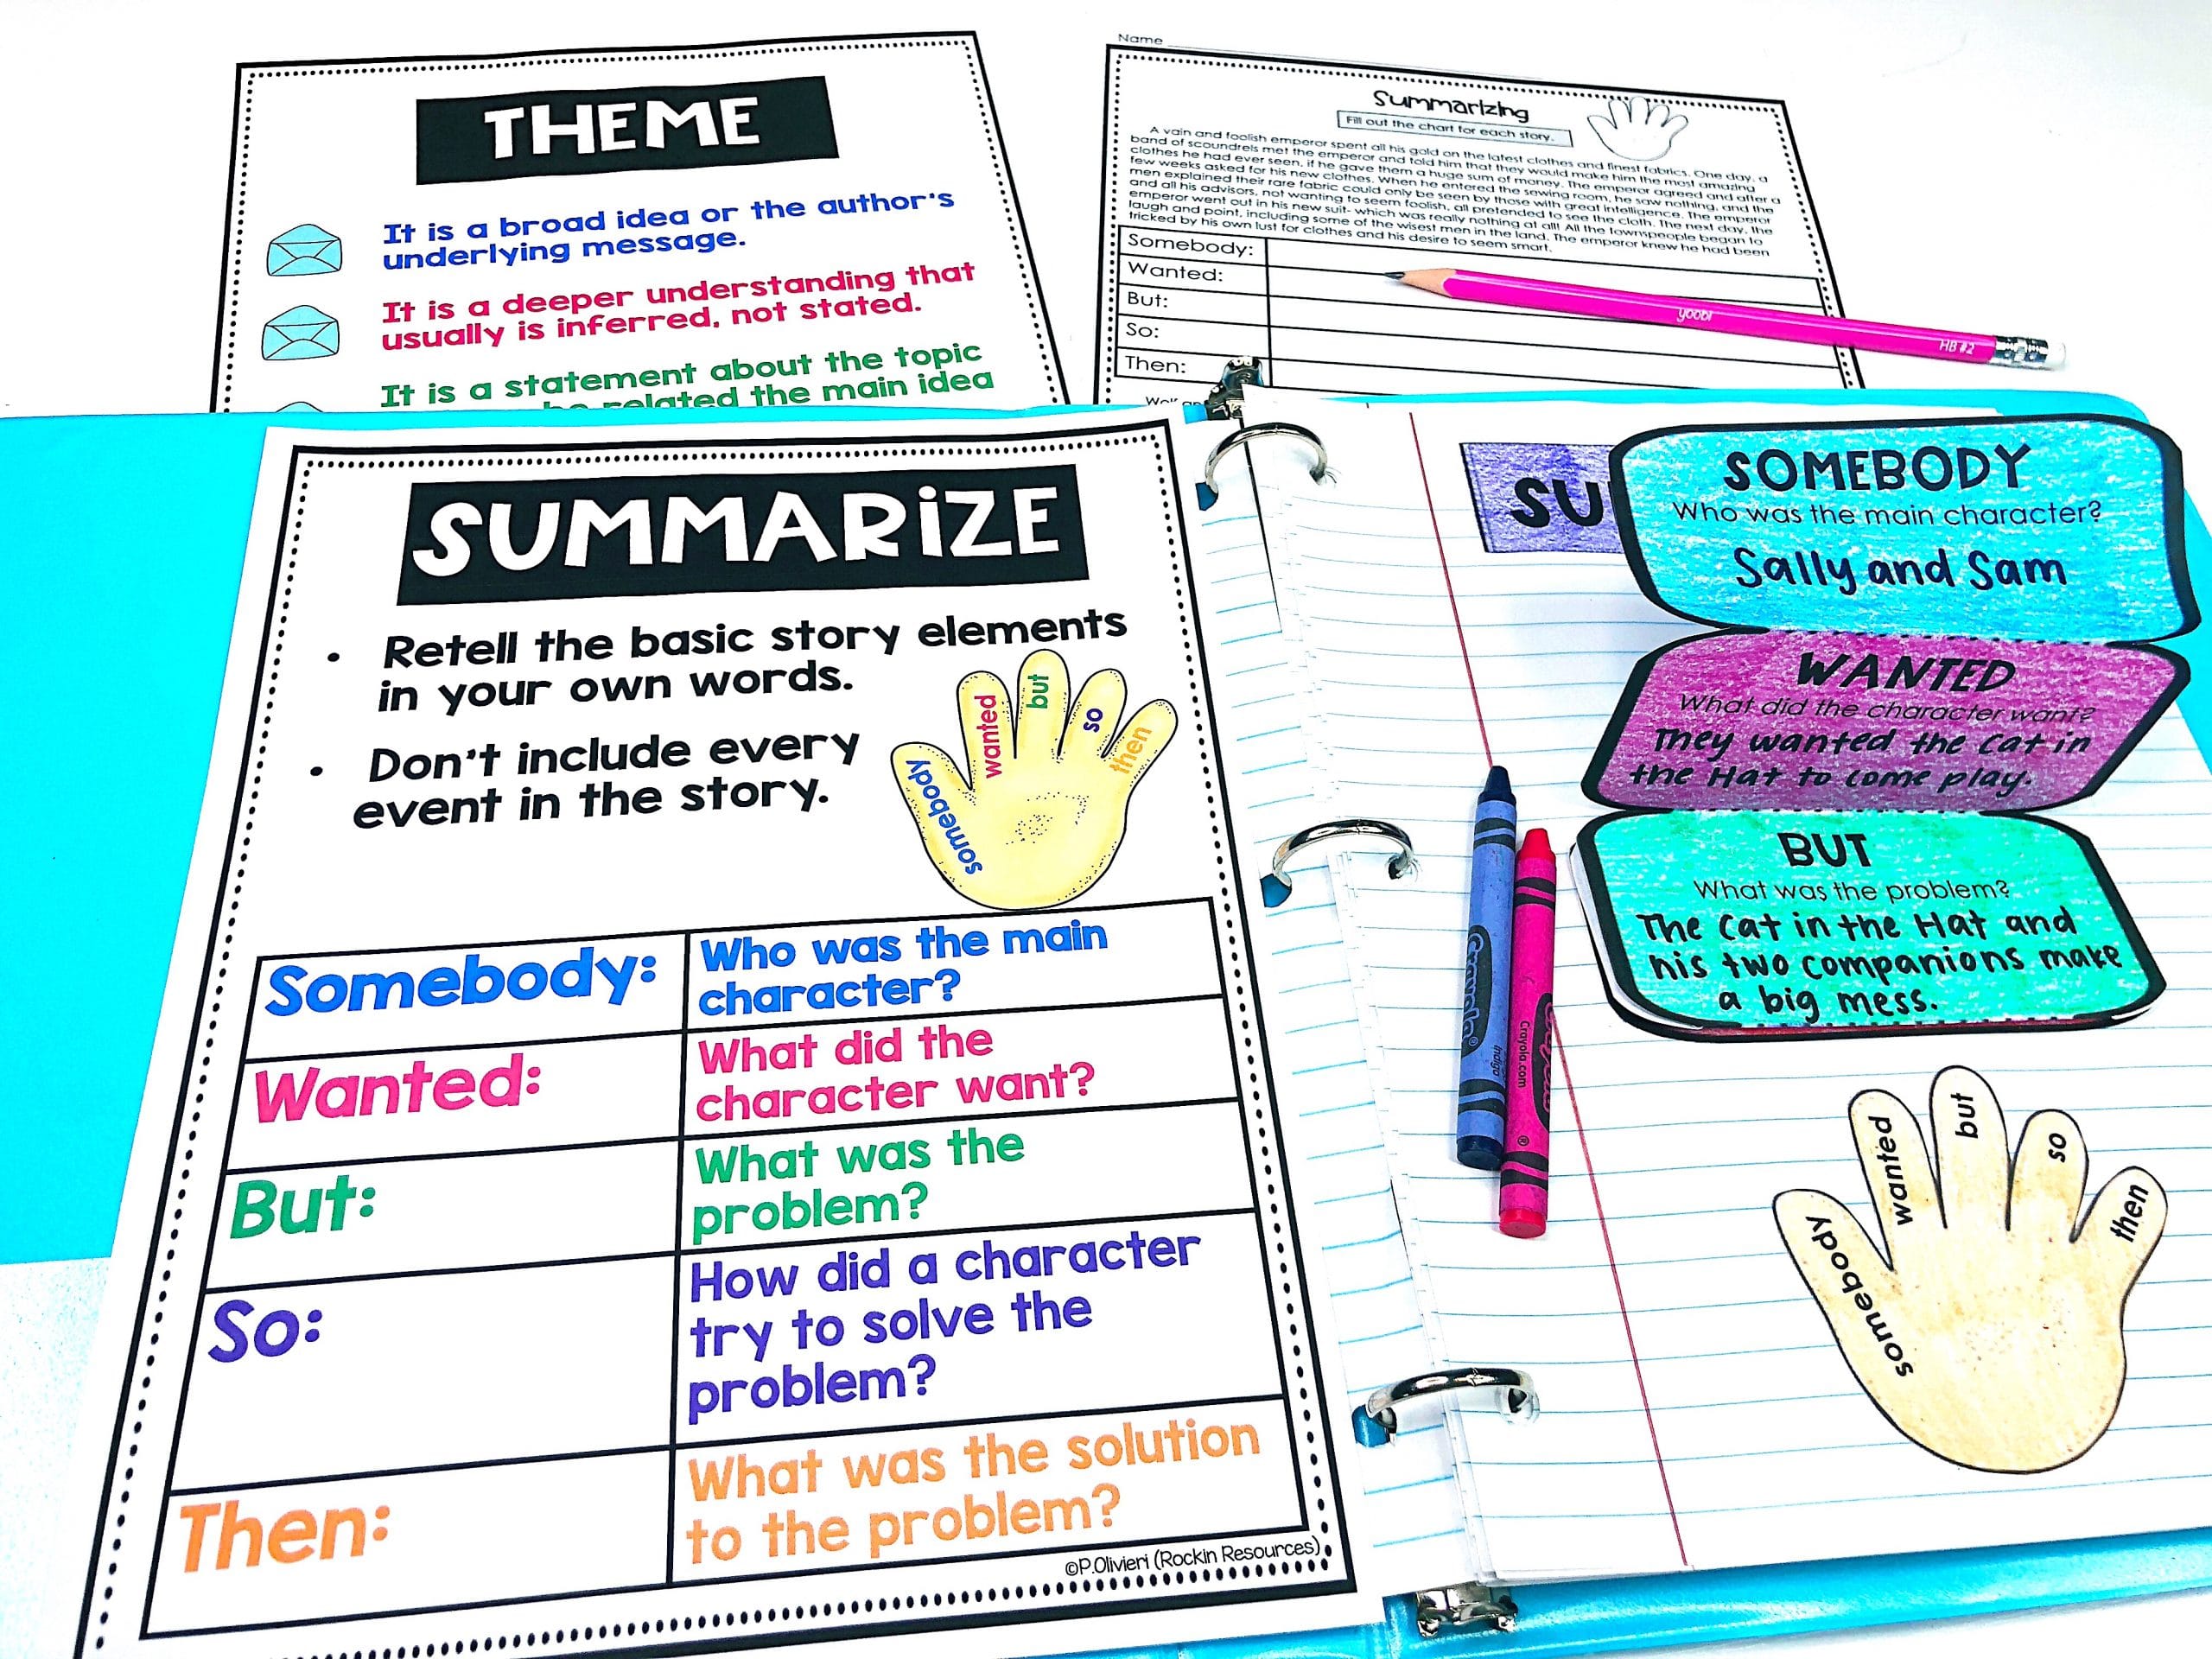 THEME
It is a broad idea or the author's
underlying message.
It is a deeper understanding that
usually is inferred, not stated.
It is a statement about the topic
related the main idea
Name
Summarizing
Fill out the chart for each story.
A vain and foolish emperor spent all his gold on the latest clothes and finest fabrics. One day, a
band of scoundrels met the emperor and told him that they would make him the most amazing
clothes he had ever seen, if he gave them a huge sum of money. The emperor agreed and after a
few weeks asked for his new clothes. When he entered the sewing room, he saw nothing, and the
men explained their rare fabric could only be seen by those with great intelligence. The emperor
and all his advisors, not wanting to seem foolish, all pretended to see the cloth. The next day, the
emperor went out in his new suit- which was really nothing at all! All the townspeople began to
laugh and point, including some of the wisest men in the land. The emperor knew he had been
tricked by his own lust for clothes and his desire to seem smart.
Somebody:
Wanted:
But:
So:
Then:
yoobi
HB #2
SUMMARiZE
• Retell the basic story elements
in your own words.
• Don't include every
event in the story.
somebody
wanted
but
so
then
Somebody: Who was the main
character?
Wanted: What did the
character want?
But: What was the
problem?
So: How did a character
try to solve the
problem?
Then: What was the solution
to the problem?
©P.Olivieri (Rockin Resources)
SU
SOMEBODY
Who was the main character?
Sally and Sam
WANTED
What did the character want?
They wanted the Cat in
the Hat to come play.
BUT
What was the problem?
The Cat in the Hat and
his two companions make
a big mess.
Crayola®
indigo
Crayola.com
somebody
wanted
but
so
then